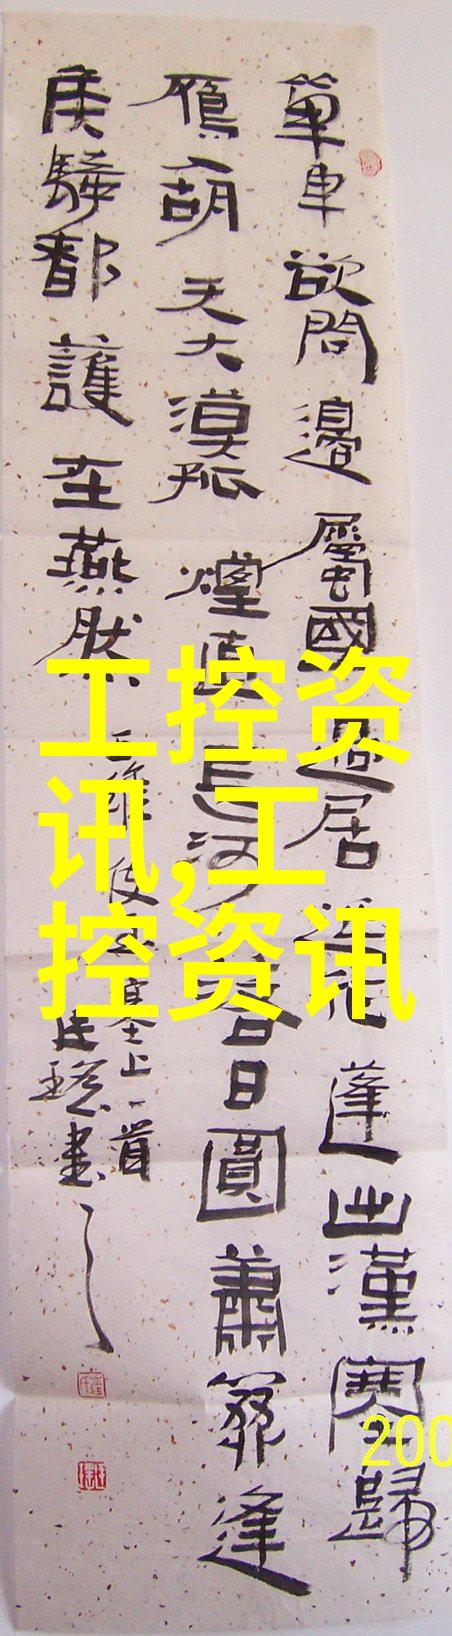 單車欲問邊屬國過居延征蓬出漢塞歸
鴈入胡天大漠孤煙直長河落日圓蕭關逢
候騎都護在燕然
王維使至塞上一首
書
工控资
讯,工
控资讯
200